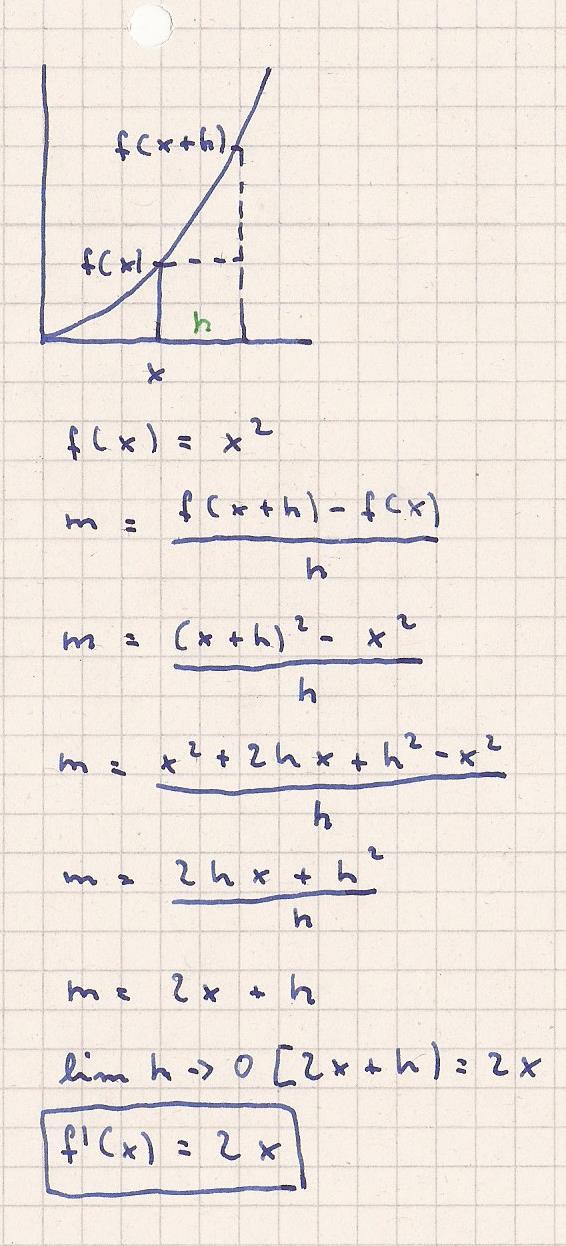 f(x+h)
f(x)
h
x
f(x) = x²
m = f(x+h) - f(x) / h
m = (x+h)² - x² / h
m = x² + 2hx + h² - x² / h
m = 2hx + h² / h
m = 2x + h
lim h -> 0 [2x+h) = 2x
f'(x) = 2x